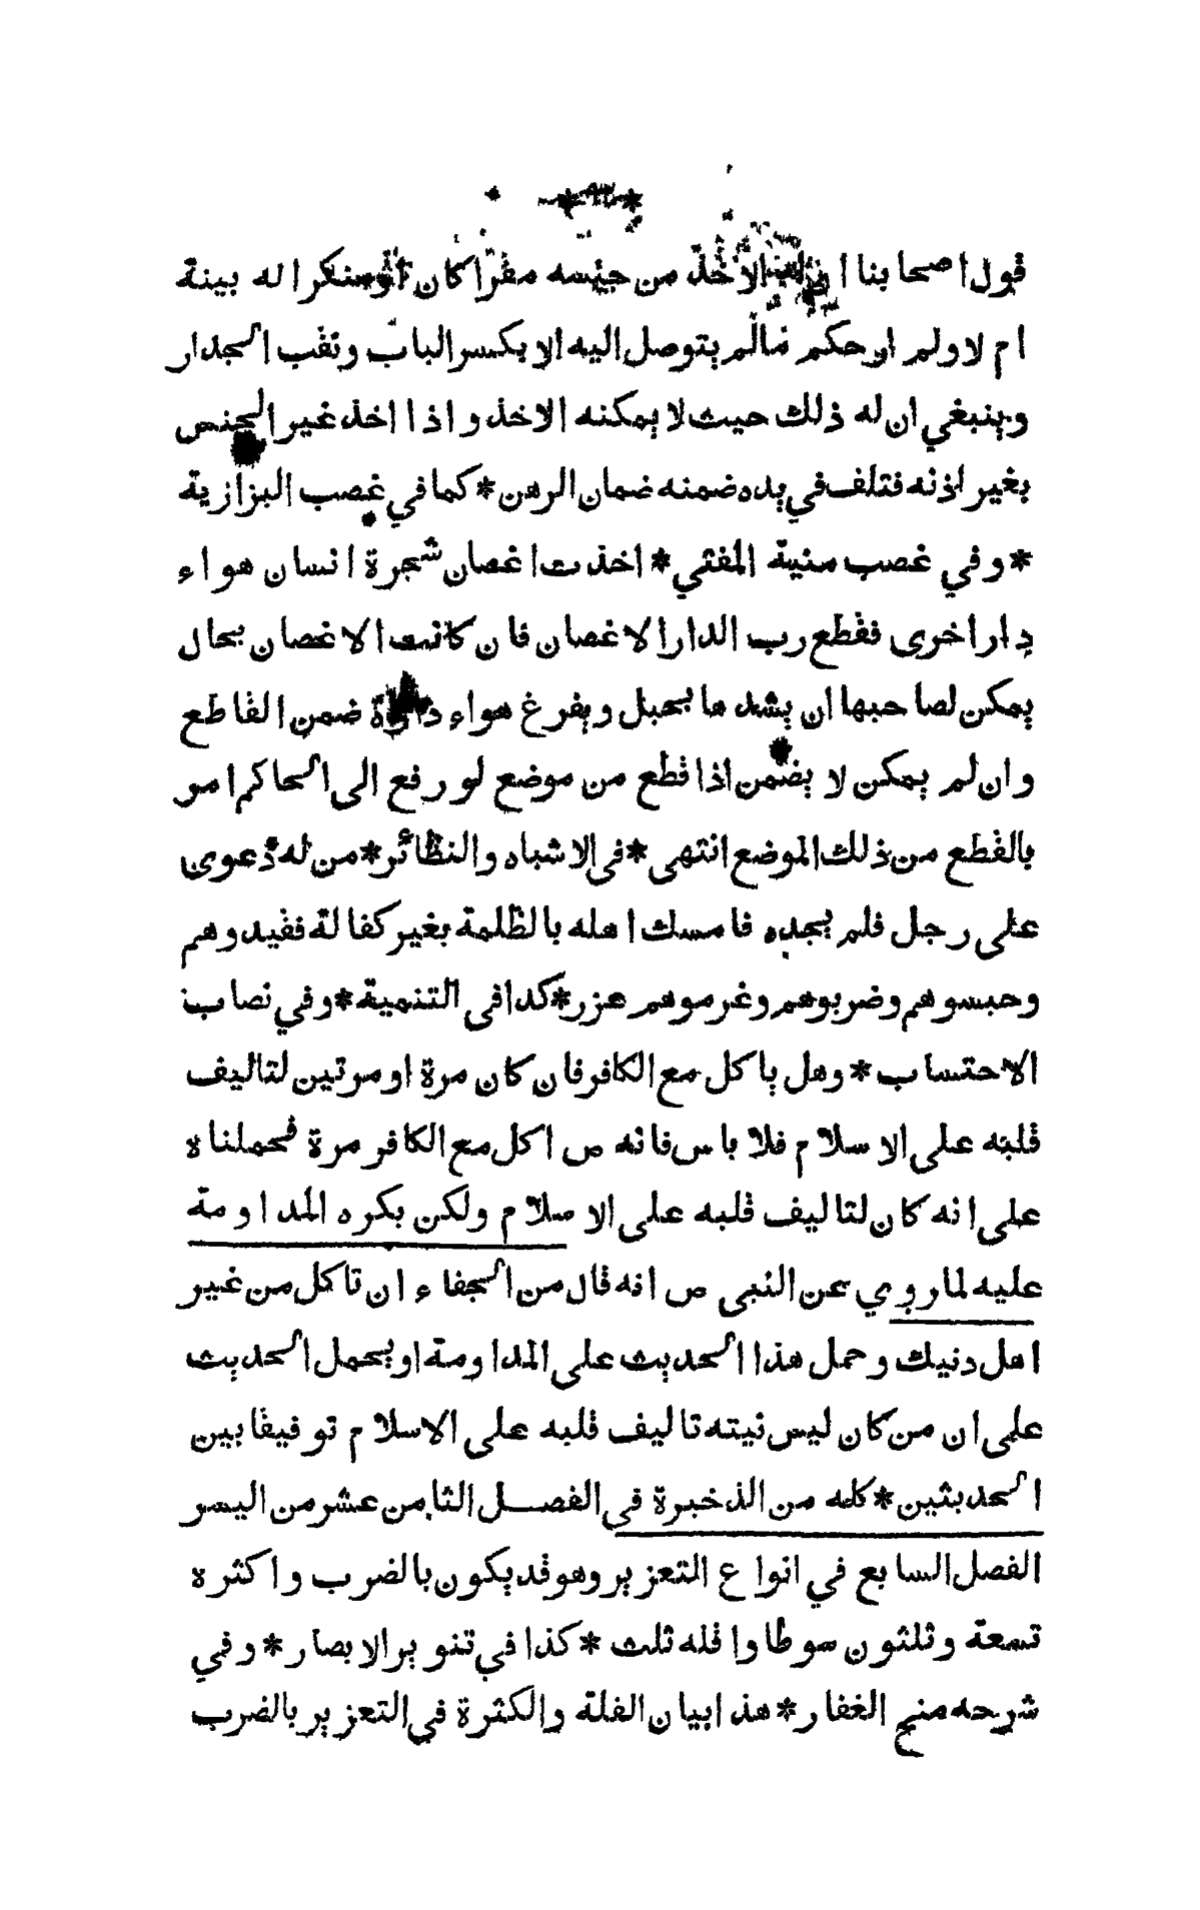 قول اصحابنا ان له الاخذ من جنسه مقرا كان او منكرا له بينة
ام لا ولم ار حكم مالم يتوصل اليه الا بكسر الباب ونقب الجدار
وينبغي ان له ذلك حيث لا يمكنه الاخذ واذا اخذ غير الجنس
بغير اذنه فتلف في يده ضمنه ضمان الرهن * كما في غصب البزازية
* وفي غصب منية المفتي * اخذت اغصان شجرة انسان هواء
دار اخرى فقطع رب الدار الاغصان فان كانت الاغصان بحال
يمكن لصاحبها ان يشدها بحبل ويفرغ هواء داره ضمن القاطع
وان لم يمكن لا يضمن اذا قطع من موضع لو رفع الى الحاكم امر
بالقطع من ذلك الموضع انتهى * فى الاشباه والنظائر * من له دعوى
على رجل فلم يجده فامسك اهله بالظلمة بغير كفالة فقيدوهم
وحبسوهم وضربوهم وغرموهم عزر * كدا فى التنمية * وفي نصاب
الاحتساب * وهل ياكل مع الكافر فان كان مرة او مرتين لتاليف
قلبه على الاسلام فلا باس فانه ص اكل مع الكافر مرة فحملناه
على انه كان لتاليف قلبه على الاسلام ولكن يكره المداومة
عليه لما روي عن النبى ص انه قال من الجفاء ان تاكل من غير
اهل دنيك وحمل هذا الحديث على المداومة او يحمل الحديث
على ان من كان ليس نيته تاليف قلبه على الاسلام توفيقا بين
الحديثين * كله من الذخيرة فى الفصل الثامن عشر من اليسر
الفصل السابع في انواع التعزير وهو قد يكون بالضرب واكثره
تسعة وثلثون سوطا واقله ثلث * كذا في تنوير الابصار * وفي
شرحه منح الغفار * هذا بيان القلة والكثرة في التعزير بالضرب